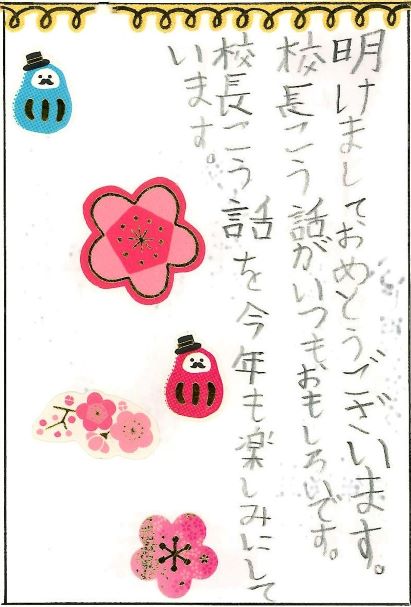 明けましておめでとうございます。
校長こう話がいつもおもしろいです。
校長こう話を今年も楽しみにして
います。